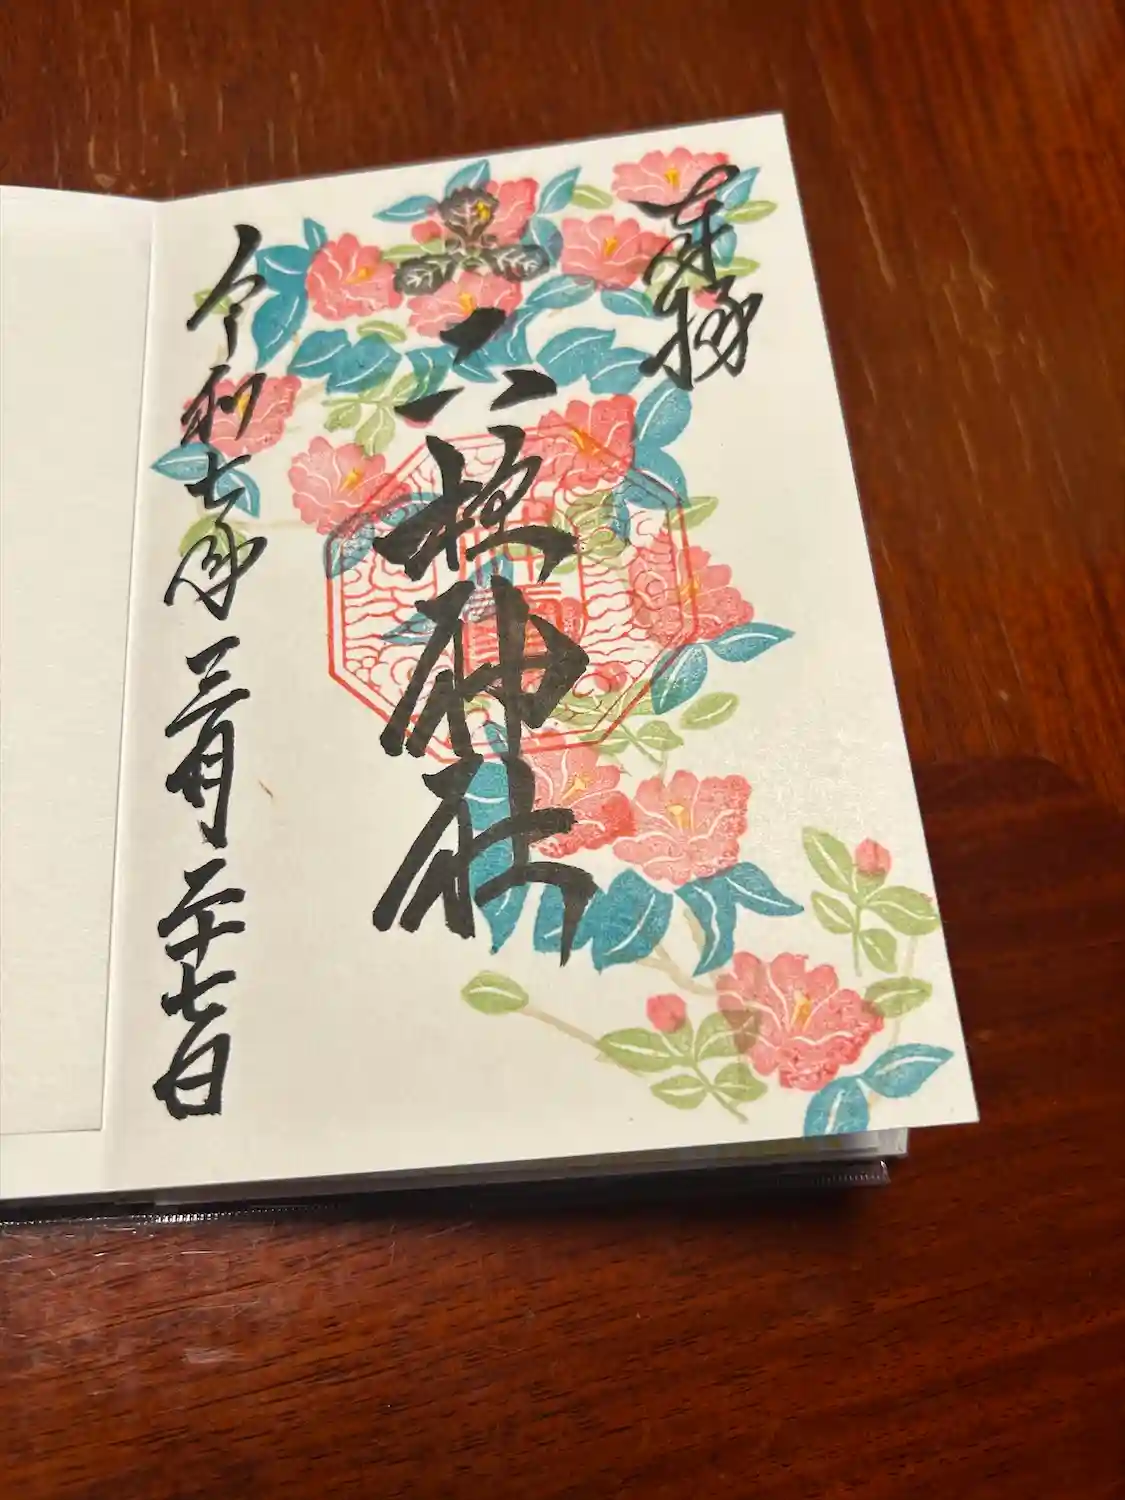 奉拝
六柱神社
令和七年三月二十七日